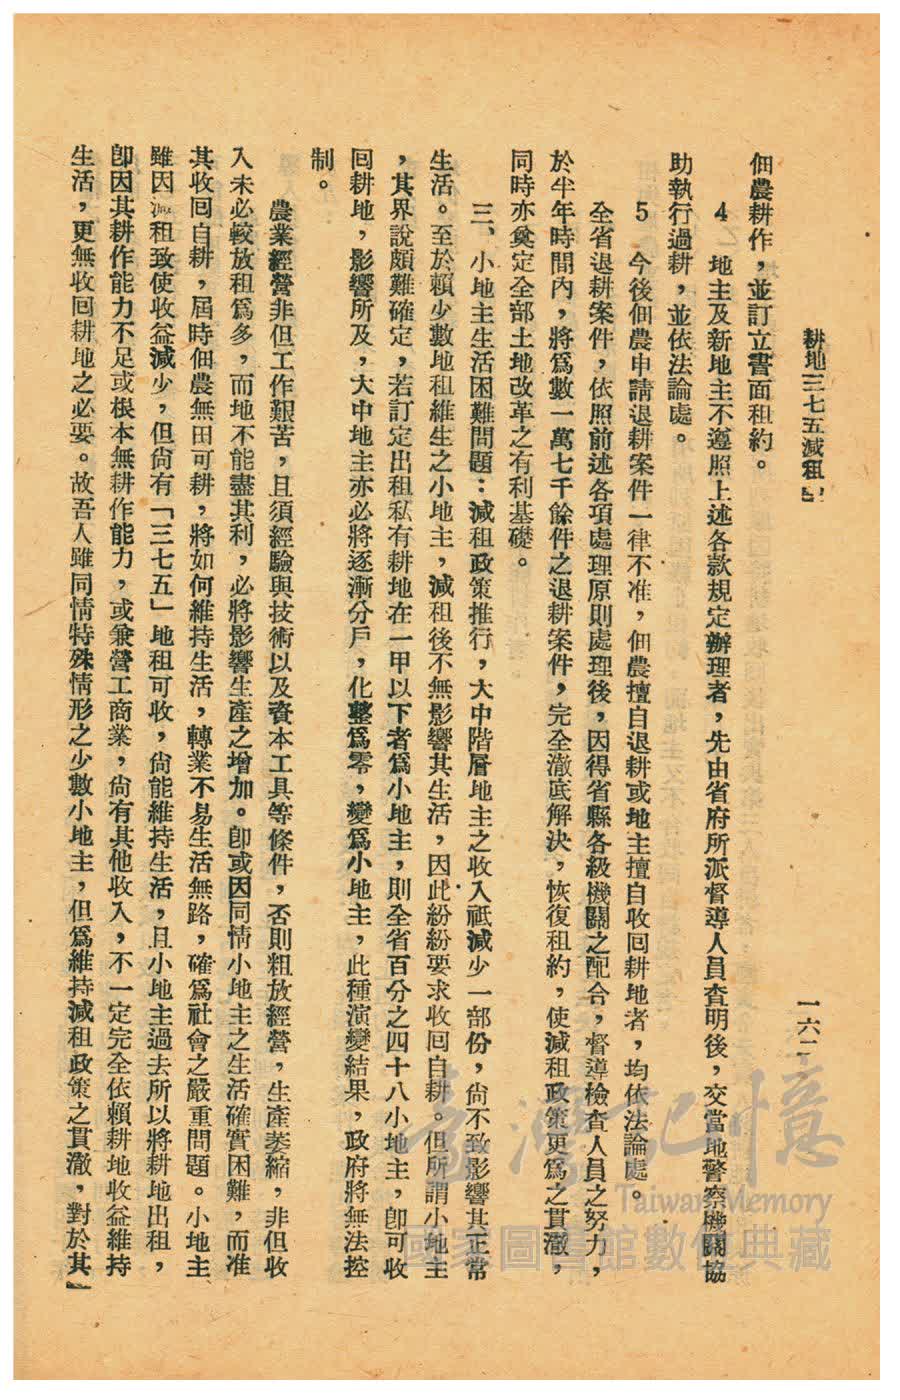 耕地三七五減租
一六二
佃農耕作，並訂立書面租約。
4　地主及新地主不遵照上述各款規定辦理者，先由省府所派督導人員查明後，交當地警察機關協
助執行過耕，並依法論處。
5　今後佃農申請退耕案件一律不准，佃農擅自退耕或地主擅自收回耕地者，均依法論處。
全省退耕案件，依照前述各項處理原則處理後，因得省縣各級機關之配合，督導檢查人員之努力，
於半年時間內，將爲數一萬七千餘件之退耕案件，完全澈底解決，恢復租約，使減租政策更爲之貫澈，
同時亦奠定全部土地改革之有利基礎。
三、小地主生活困難問題：減租政策推行，大中階層地主之收入祇減少一部份，尙不致影響其正常
生活。至於賴少數地租維生之小地主，減租後不無影響其生活，因此紛紛要求收回自耕。但所謂小地主
，其界說頗難確定，若訂定出租私有耕地在一甲以下者爲小地主，則全省百分之四十八小地主，卽可收
回耕地，影響所及，大中地主亦必將逐漸分戶，化整爲零，變爲小地主，此種演變結果，政府將無法控
制。
農業經營非但工作艱苦，且須經驗與技術以及資本工具等條件，否則粗放經營，生產萎縮，非但收
入未必較放租爲多，而地不能盡其利，必將影響生產之增加。卽或因同情小地主之生活確實困難，而准
其收回自耕，屆時佃農無田可耕，將如何維持生活，轉業不易生活無路，確爲社會之嚴重問題。小地主
雖因減租致使收益減少，但尙有「三七五」地租可收，尙能維持生活，且小地主過去所以將耕地出租，
卽因其耕作能力不足或根本無耕作能力，或兼營工商業，尙有其他收入，不一定完全依賴耕地收益維持
生活，更無收回耕地之必要。故吾人雖同情特殊情形之少數小地主，但爲維持減租政策之貫澈，對於其
臺灣記憶
Taiwan Memory
國家圖書館數位典藏